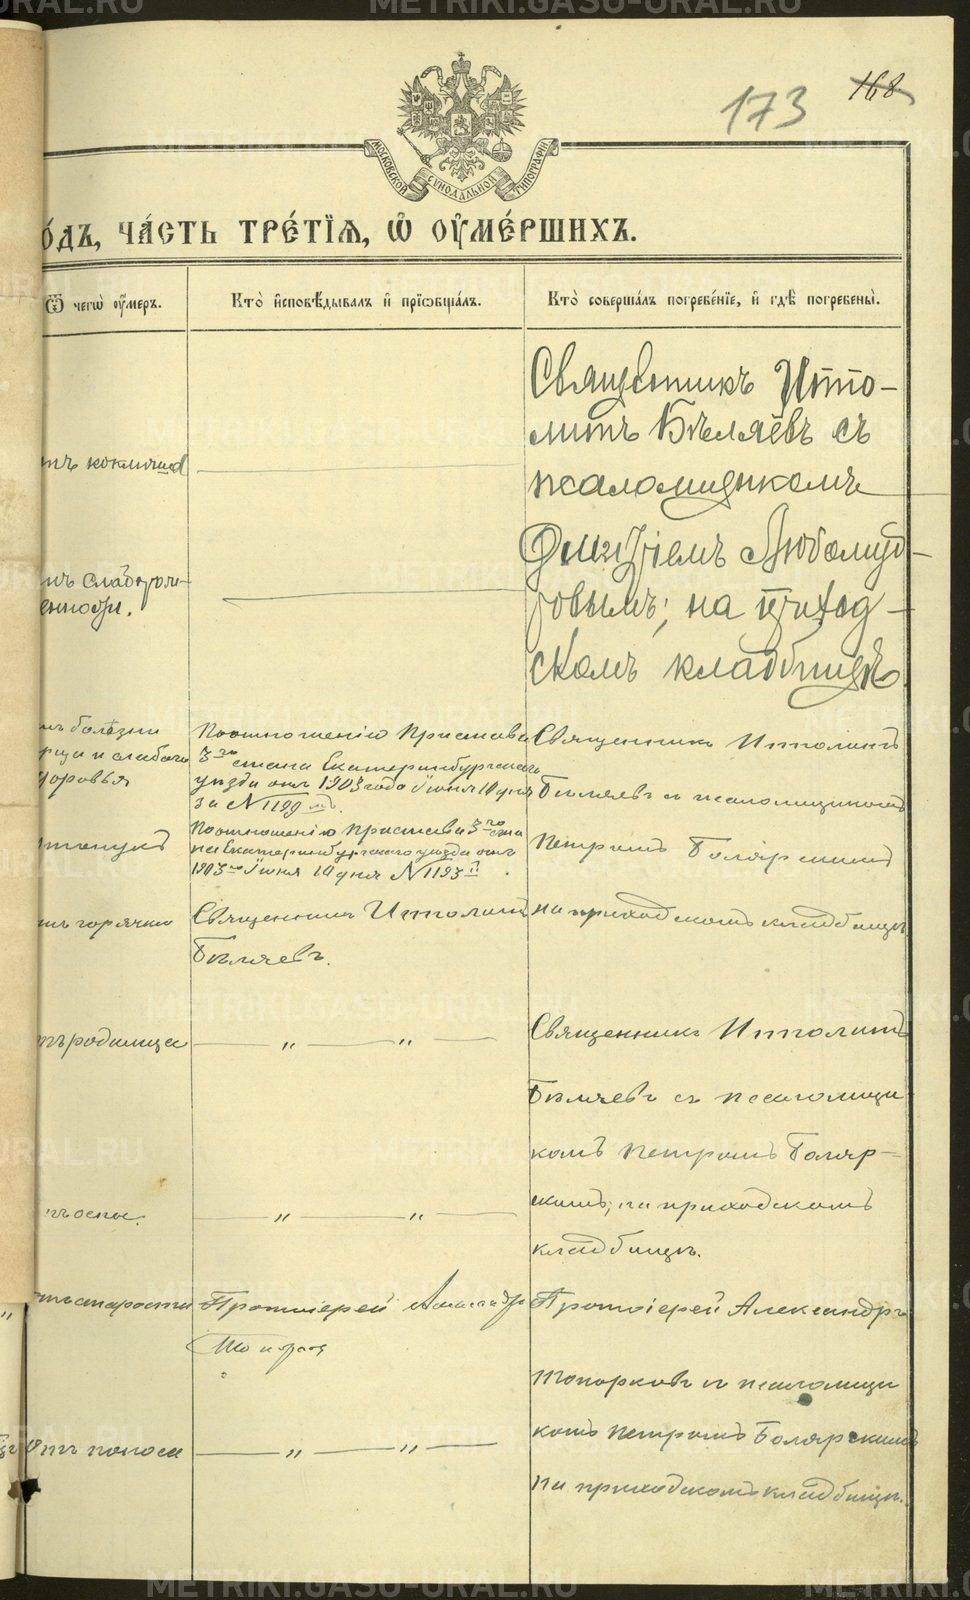 173
168
МОСКОВСКОЙ СѴНОДАЛЬНОЙ ТИПОГРАФІИ
О́ДЪ, ЧА́СТЬ ТРЕ́ТІѦ, Ѡ҆ ОУ҆МЕ́РШИХЪ.
Ѿ чегѡ̀ оу҆́меръ.
Кто̀ и҆сповѣ́дывалъ и҆ прїѡбща́лъ.
Кто̀ соверша́лъ погребе́нїе, и҆ гдѣ̀ погребены̀.
Священникъ Иппо-
литъ Бѣляевъ съ
псаломщикомъ
Дмитріемъ Любомуд-
ровымъ; на приход-
скомъ кладбищѣ
тъ коклюша
тъ слаборож-
енности.
тъ болѣзни
и слабаго
доровья
По отношенію Пристава
3го стана Екатеринбургскаго
уѣзда отъ 1903 года Іюня 10 дня
за № 1199
Священникъ Ипполитъ
Бѣляевъ съ псаломщикомъ
По отношенію Пристава 3го ста
на Екатеринбургскаго уѣзда отъ
1903го Іюня 10 дня № 1193
Петромъ Боляр скимъ
тъ горячки
Священникъ Ипполитъ
Бѣляевъ.
на приходскомъ кладбищѣ
тъ родимца
— „ — „ —
Священникъ Ипполитъ
Бѣляевъ съ псаломщи
комъ Петромъ Боляр-
скимъ; на приходскомъ
кладбищѣ.
тъ оспы.
— „ — „ —
тъ старости
Протоіерей Александръ
Топорков
Протоіерей Александръ
Топорковъ съ псаломщи
комъ Петромъ Болярскимъ
на приходскомъ кладбищѣ.
Отъ поноса
— „ — „ —
METRIKI.GASO-URAL.RU